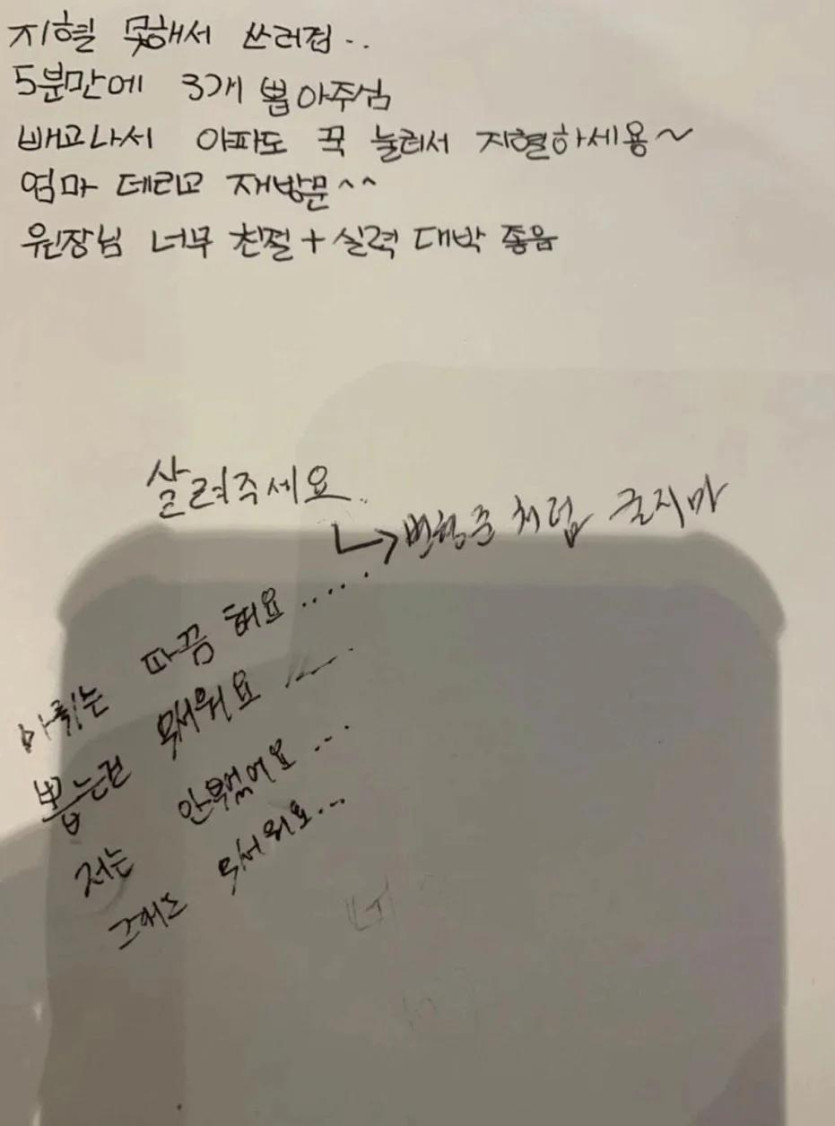 지혈 못해서 쓰러졈..
5분만에 3개 뽑아주심
빼고나서 아파도 꾹 눌러서 지혈하세용~
엄마 데리고 재방문^^
원장님 너무 친절+실력 대박 좋음
살려주세요..
↳ 변형준처럼 굴지마
마취는 따끔해요.....
뽑는건 무서워요....
저는 안울었어요...
그래도 무서워요...